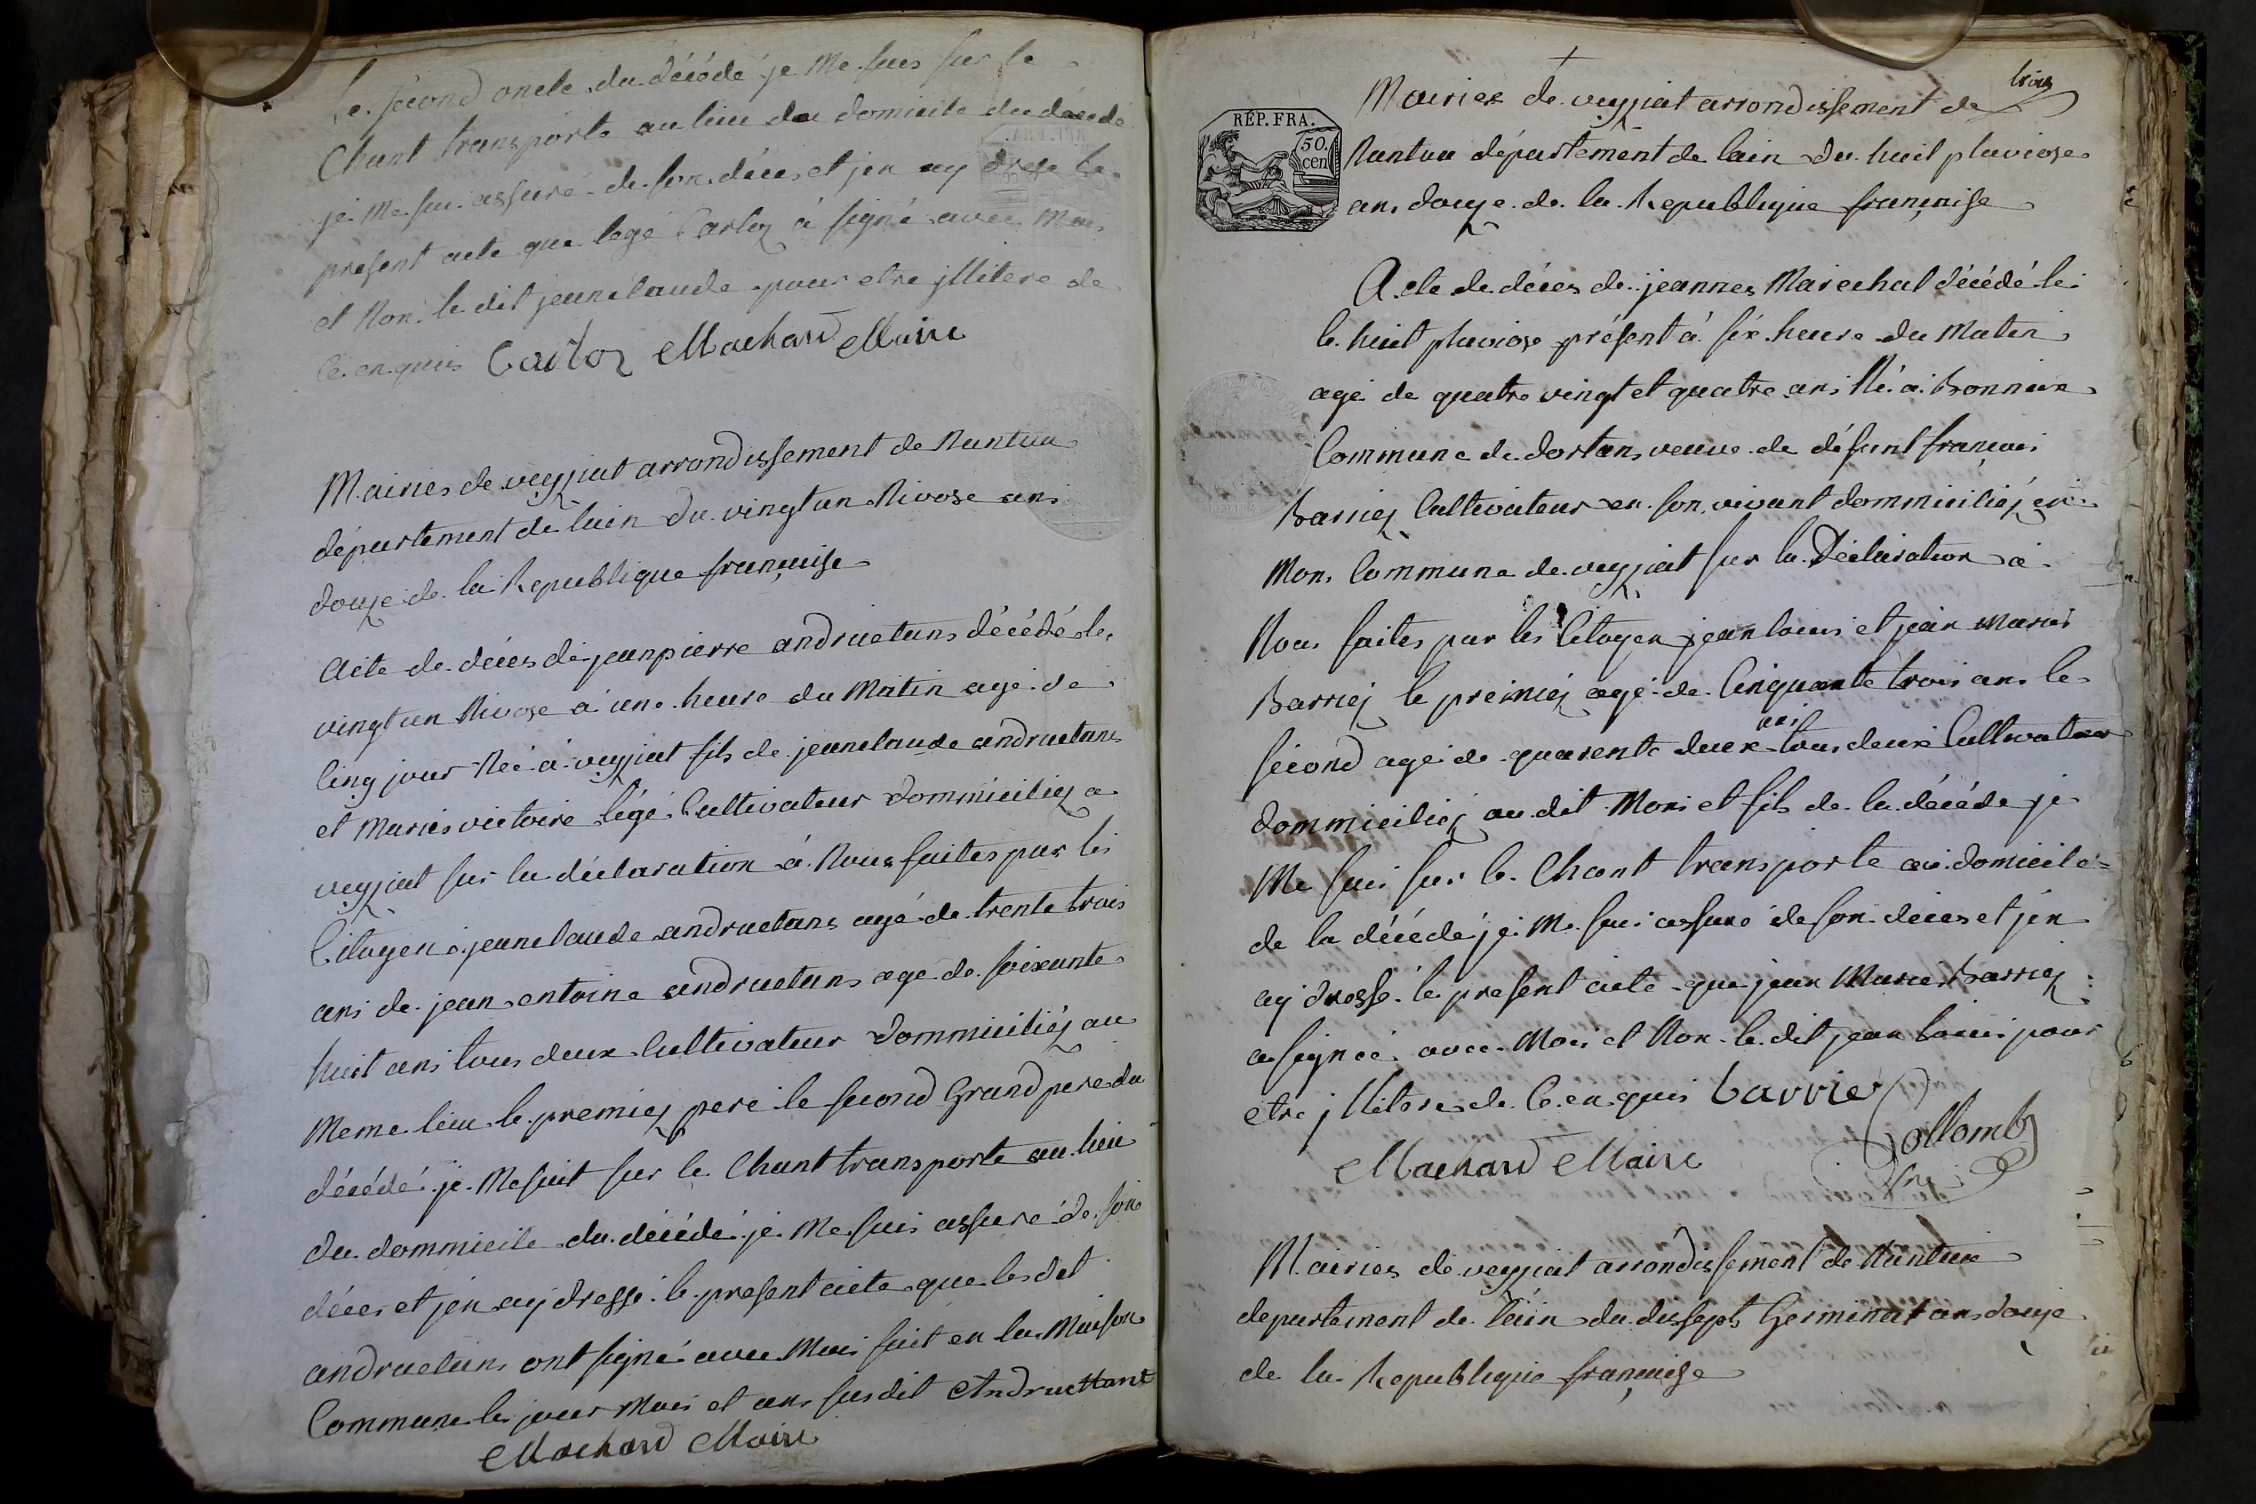 Le second oncle du décédé je me suis sur le
Chant transporte au lieu du domicile du décédé
je me sui assuré de son décès et jen ay drese le
présent acte que legé Carloz à signé avec Moi
et Non le dit jeanclaude pour etre jllitere de
Ce enquis Carloz Machard Maire
Mairies de veyziat arrondissement de Nantua
département de lain du vingt un Nivose ans
douze de la Republique française
Acte de décès de jeanpierre andruetans décédé le
vingt un Nivose à une heure du Matin agé de
Cinq jour Né à veyziat fils de jeanclaude andruetans
et Maries victoire légé Cultivateur dommiciliez a
veyziat sur la déclaration à Nous faites par les
Citoyen jeanclaude andruetans agé de trente trois
ans de jean antoine andruetans age de soixante
huit ans tous deux Cultivateur dommiciliéz au
Meme lieu le premiez pere le second Grand pere du
décédé je Me suit sur le Chant transporte au lieu
du dommicile du décédé je me suis assuré de son
décès et jen ay dressé le present acte que lesdit
andruetans ont signé avec Moi fait en la Maison
Commune le jour Mois et ans susdit Andruettant
Machard Maire
trois
RÉP. FRA.
50.
cen
Mairies de veyziat arrondissement de
Nantua département de lain du huit pluviose
ans douze de la Republique française
Acte de décès de jeannes Marechal décédé le
le huit pluviose présent à six heure du Matin
agé de quatre vingt et quatre ans Né à Bonnaz
Commune de dortans veuve de défunt françois
Barriez Cultivateur en son vivant dommiciliéz en
Mons Commune de veyziat sur la Déclaration à
Nous faites par les Citoyen jean louis et jean Maries
Barriez le premiez agé de Cinquante trois ans le
second agé de quarente deux ans tous deux Cultivateur
dommiciliez au dit Mons et fils de la décéde je
Me suis sur le Chant transporte au domicile
de la décéde je Me suis assuré de son décès et jen
ay dressé le present acte que jean Maries Barriez
a signéé avec Moi et Non le dit jean louis pour
etre jllitere de Ce enquis barrier
Collomb
Machard Maire
Mairies de veyziat arrondissement de Nantua
departement de lain du dixsept Germinal ans douze
de la Republique française